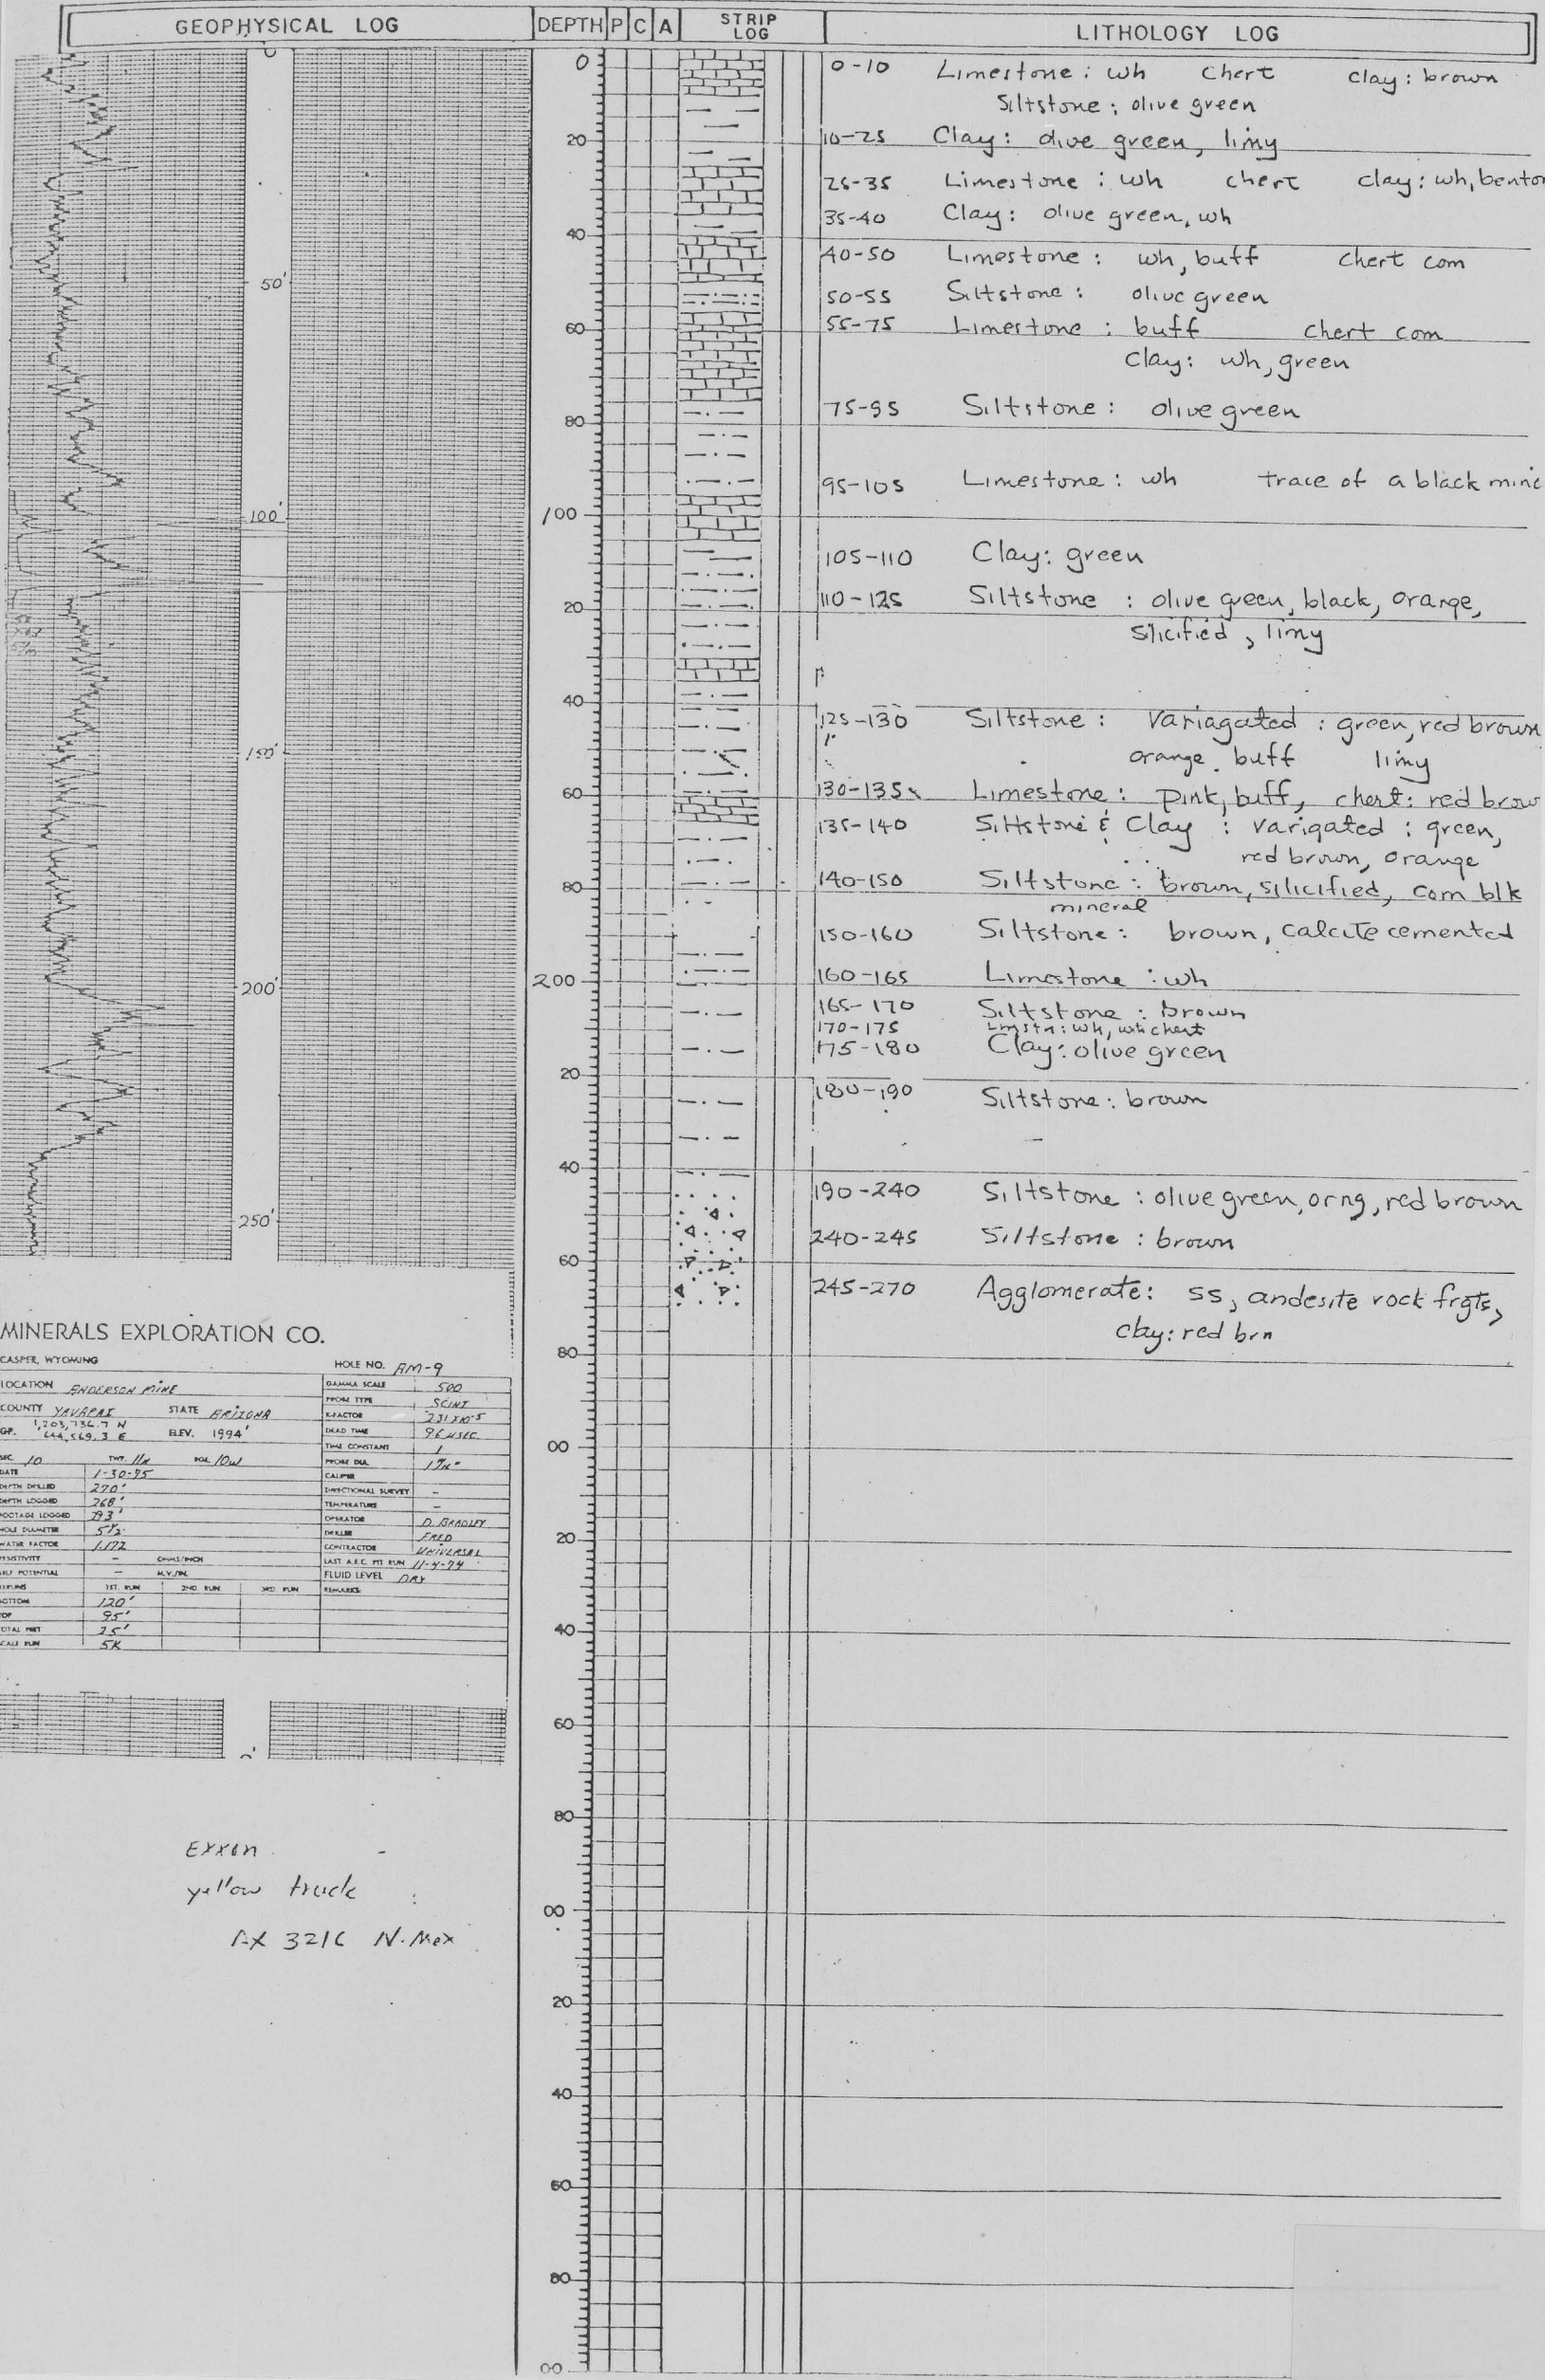 GEOPHYSICAL LOG DEPTH P C A STRIP LOG LITHOLOGY LOG
0-10 Limestone: wh chert clay: brown
Siltstone; olive green
10-25 Clay: olive green, limy
25-35 Limestone: wh chert clay: wh, benton
35-40 Clay: olive green, wh
40-50 Limestone: wh, buff chert com
50-55 Siltstone: olive green
55-75 Limestone: buff chert com
Clay: wh, green
75-95 Siltstone: olive green
95-105 Limestone: wh trace of a black mine
105-110 Clay: green
110-125 Siltstone: olive green, black, orange,
silicified, limy
125-130 Siltstone: variagated: green, red brown
orange. buff limy
130-135 Limestone: pink, buff, chert: red brow
135-140 Siltstone & Clay: varigated: green,
red brown, orange
140-150 Siltstone: brown, silicified, com blk
mineral
150-160 Siltstone: brown, calcite cemented
160-165 Limestone: wh
165-170 Siltstone: brown
170-175 Lmstn: wh, wh chert
175-180 Clay: olive green
180-190 Siltstone: brown
190-240 Siltstone: olive green, orng, red brown
240-245 Siltstone: brown
245-270 Agglomerate: ss, andesite rock frgts,
clay: red brn
0
20
40
60
80
100
20
40
60
80
200
20
40
60
80
00
20
40
60
80
00
20
40
60
80
00
50'
100'
150'
200'
250'
MINERALS EXPLORATION CO.
CASPER, WYOMING
HOLE NO. AM-9
LOCATION ANDERSON MINE
COUNTY YAVAPAI STATE ARIZONA
1,203,736.7 N
644,569.3 E ELEV. 1994'
SEC. 10 TWP. 11N RGE. 10W
DATE 1-30-75
DEPTH DRILLED 270'
DEPTH LOGGED 268'
FOOTAGE LOGGED
HOLE DIAMETER 5 1/2
WATER FACTOR 1.172
RESISTIVITY - OHMS/INCH
SELF POTENTIAL - M.V./IN.
RERUNS 1ST. RUN 2ND. RUN 3RD. RUN
BOTTOM 120'
TOP 95'
TOTAL FEET 25'
SCALE RUN 5K
GAMMA SCALE 500
PROBE TYPE SCINT
K-FACTOR
DEAD TIME
TIME CONSTANT 1
PROBE DIA.
CALIPER
DIRECTIONAL SURVEY -
TEMPERATURE -
OPERATOR D. BRADLEY
DRILLER FRED
CONTRACTOR UNIVERSAL
LAST A.E.C. PIT RUN 11-4-74
FLUID LEVEL DRY
REMARKS:
Exxon
yellow truck
AX 3216 N. Mex